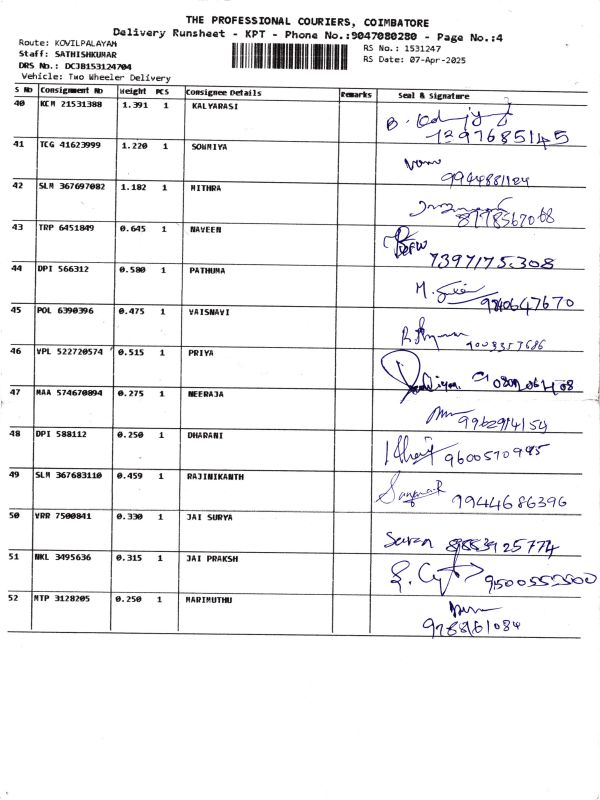 THE PROFESSIONAL COURIERS, COIMBATORE
Delivery Runsheet - KPT - Phone No.:9047080280 - Page No.:4
Route: KOVILPALAYAM
RS No.: 1531247
Staff: SATHISHKUMAR
RS Date: 07-Apr-2025
DRS No.: DCJB153124704
Vehicle: Two Wheeler Delivery
S No Consignment No Weight PCS Consignee Details Remarks Seal & Signature
40 KCM 21531388 1.391 1 KALYARASI
1397685145
41 TCG 41623999 1.220 1 SOWMIYA
9944881124
42 SLM 367697082 1.182 1 MITHRA
43 TRP 6451849 0.645 1 NAVEEN
7397175308
44 DPI 566312 0.580 1 PATHUMA
9840647670
45 POL 6390396 0.475 1 VAISNAVI
9003357686
46 VPL 522720574 0.515 1 PRIYA
47 MAA 574670894 0.275 1 NEERAJA
9962914154
48 DPI 588112 0.250 1 DHARANI
9600570945
49 SLM 367683110 0.459 1 RAJINIKANTH
9944686396
50 VRR 7500841 0.330 1 JAI SURYA
51 NKL 3495636 0.315 1 JAI PRAKSH
9500555300
52 MTP 3128205 0.250 1 MARIMUTHU